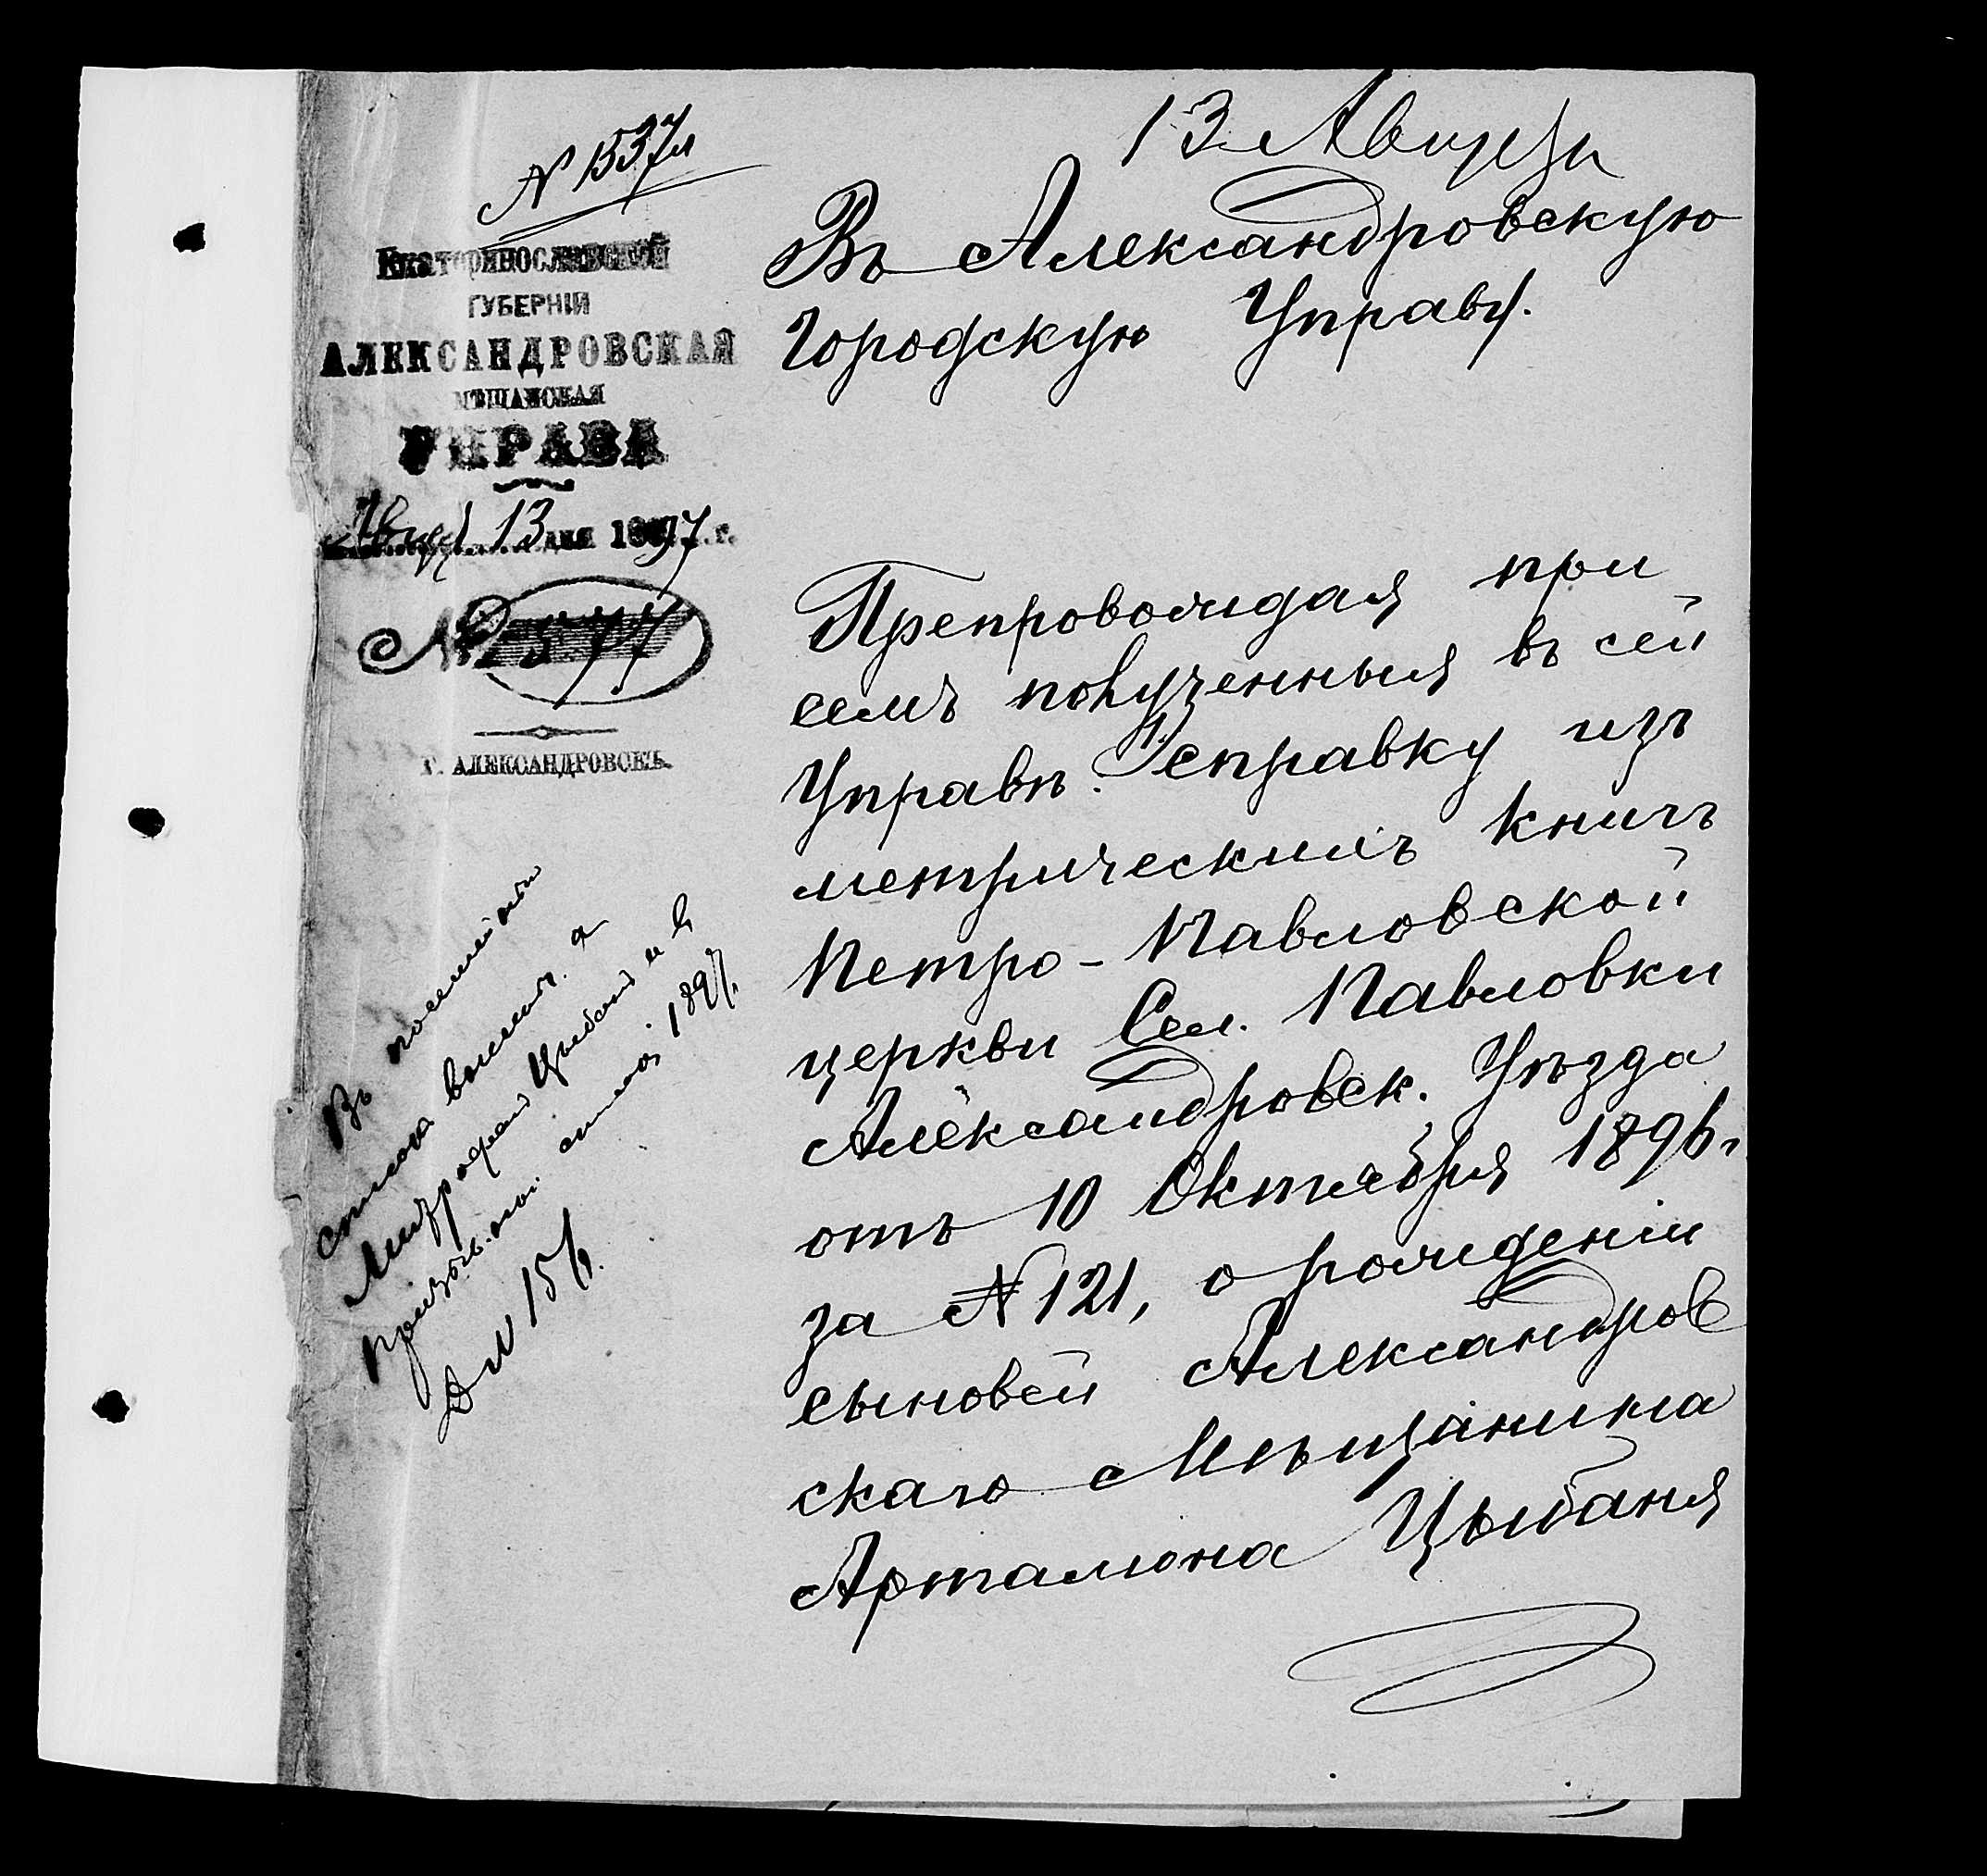 13 Августа
№ 1537
Въ Александровскую
Городскую Управу.
ЕКАТЕРИНОСЛАВСКОЙ
ГУБЕРНІИ
АЛЕКСАНДРОВСКАЯ
МѢЩАНСКАЯ
УПРАВА
Августа 13 дня 1897 г.
№
Г. АЛЕКСАНДРОВСКЪ.
Препровождая при
семъ полученныя въ сей
Управѣ справку изъ
метрическихъ книгъ
Петро-Павловской
церкви Сел. Павловки
Александровск. Уѣзда
отъ 10 Октября 1896 г.
за № 121, о рожденіи
сыновей Александров
скаго Мѣщанина
Артамона Цыбаня
Въ
списокъ
Цыбань и въ
1897 г.
Д № 15